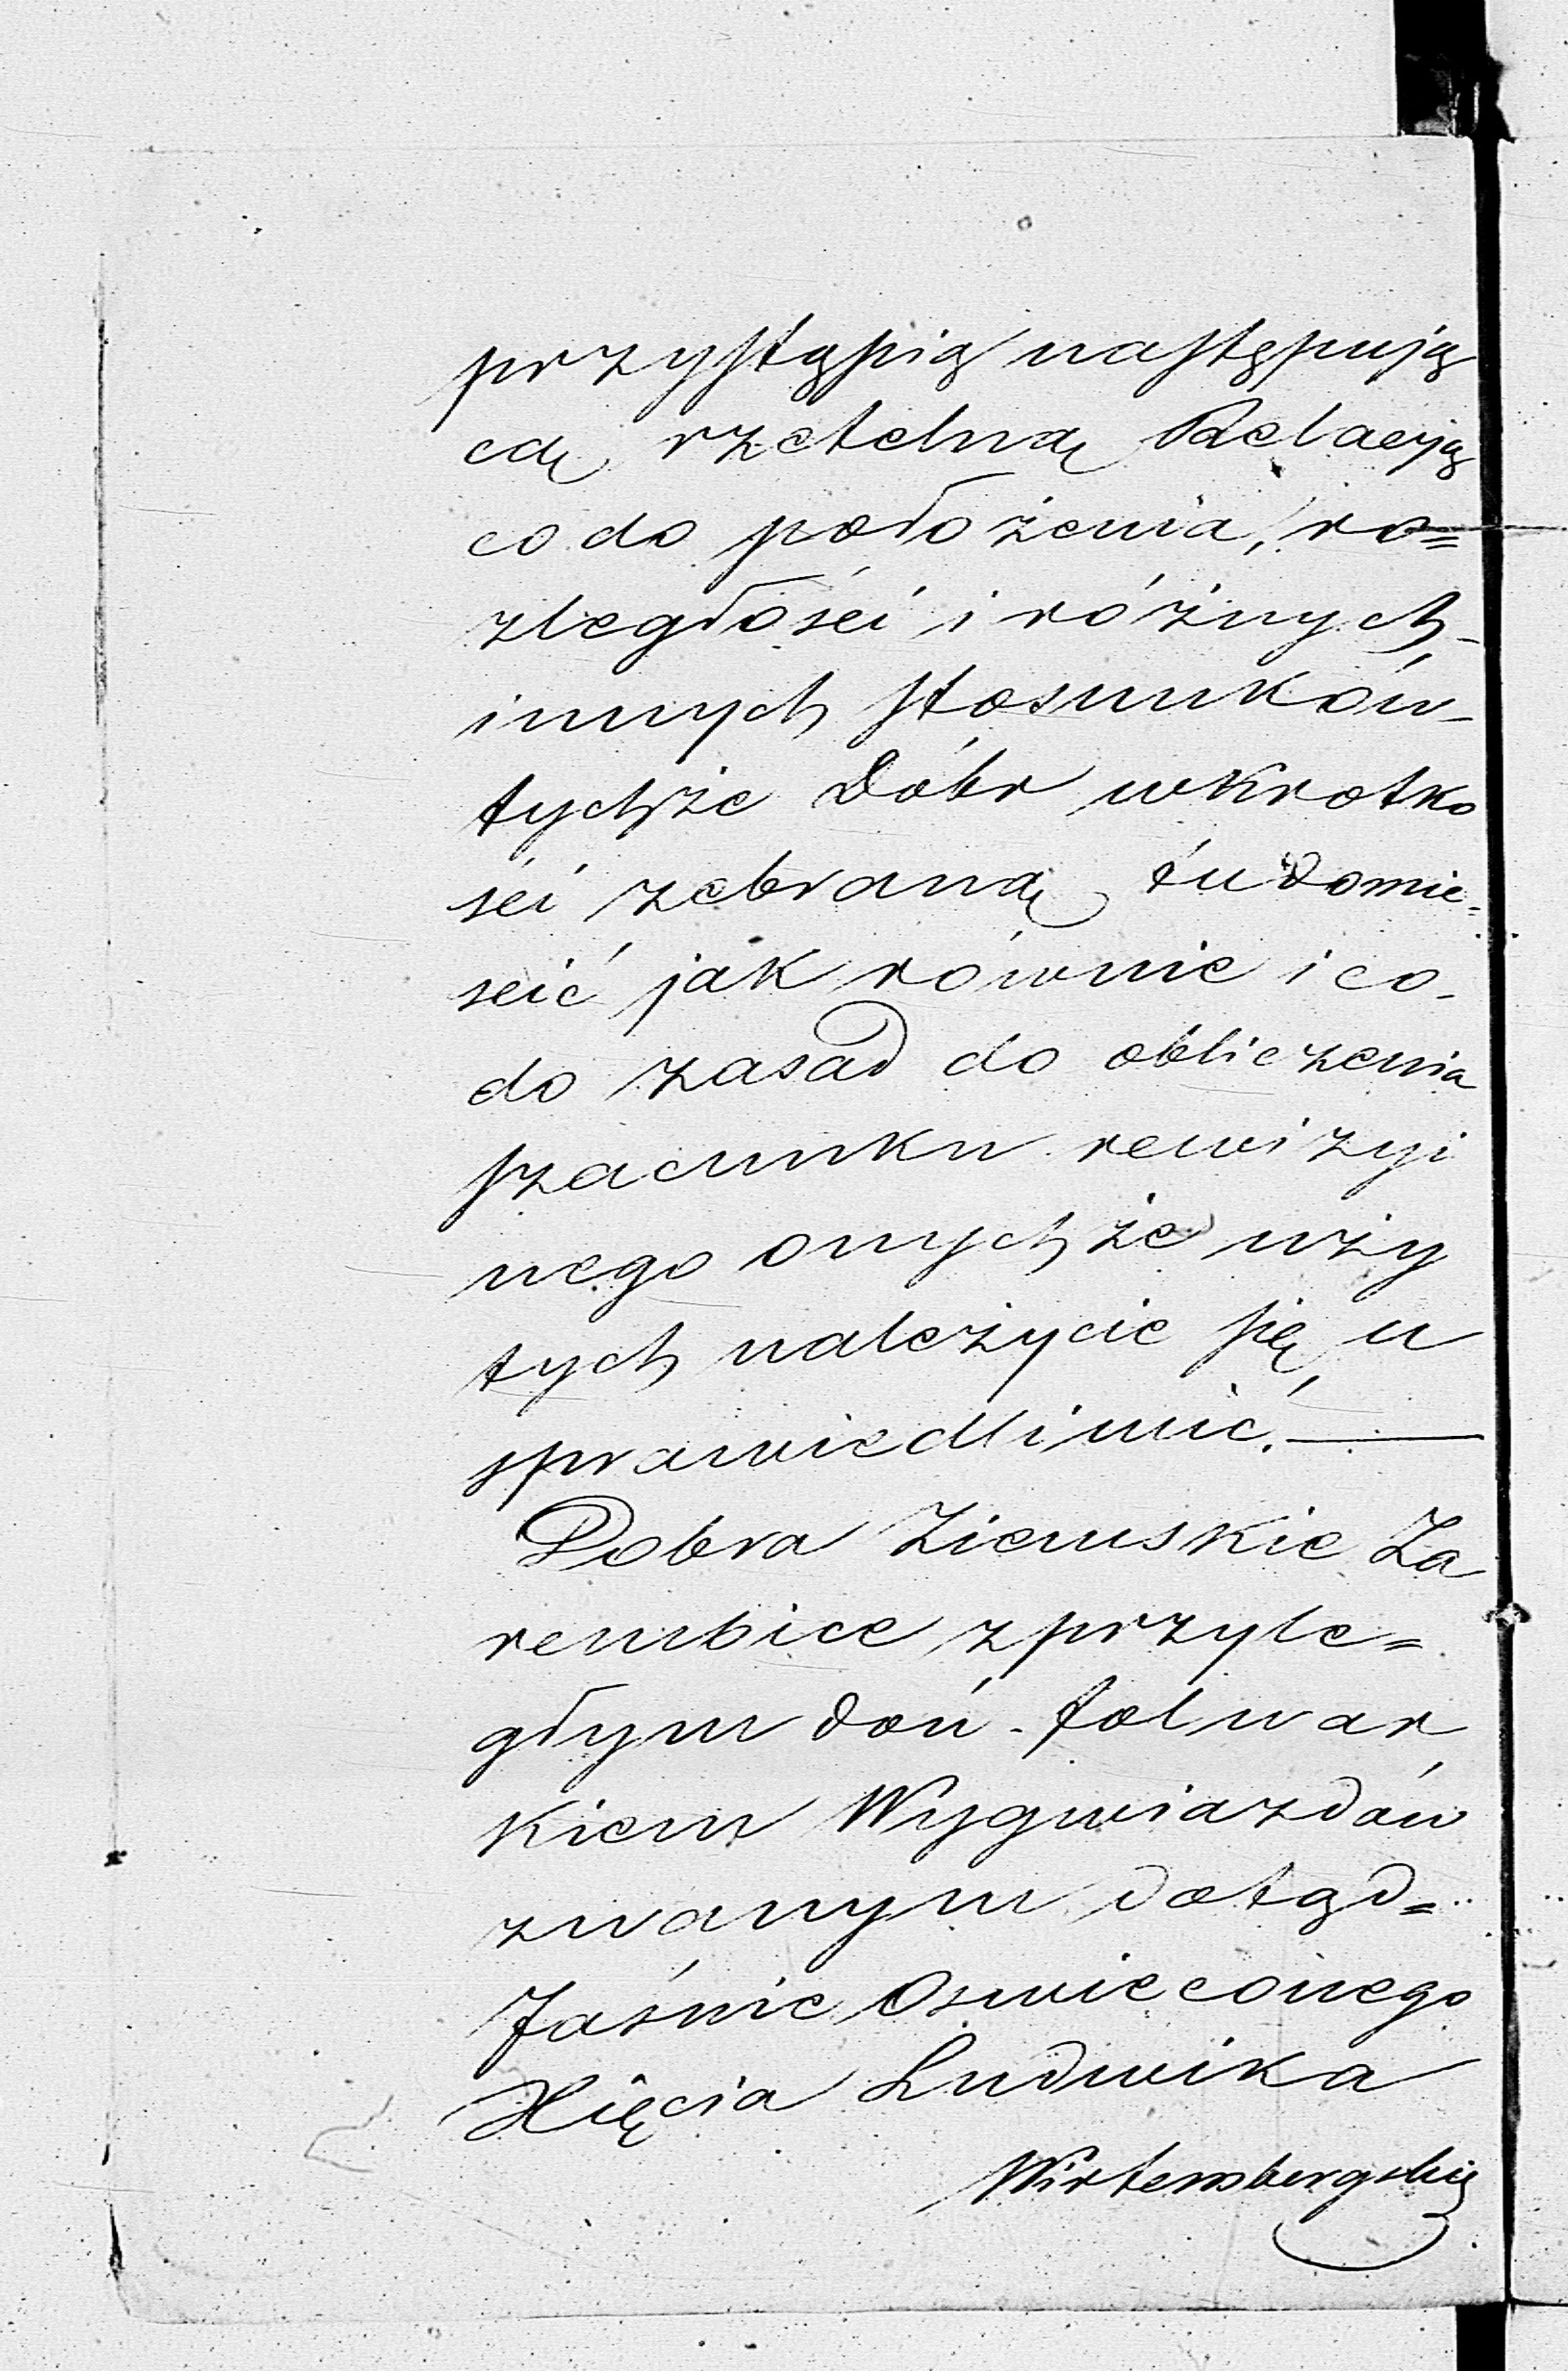 przystąpią następują
cą rzetelną Relacyją
co do położenia, ro=
zległości i różnych
innych stosunków
tychże Dóbr wkrotko
ści zebraną tu domie=
ścić jak równie i co
do zasad do obliczenia
szacunku rewizyi
nego onychże uży
tych należycie się u
sprawiedliwić. —
Dobra Ziemskie Za
rembice z przyle=
głym doń folwar
kiem Wygwiazdów
zwanym dotąd=
Jaśnie Oswieconego
Xięcia Ludwika
Wirtembergskie